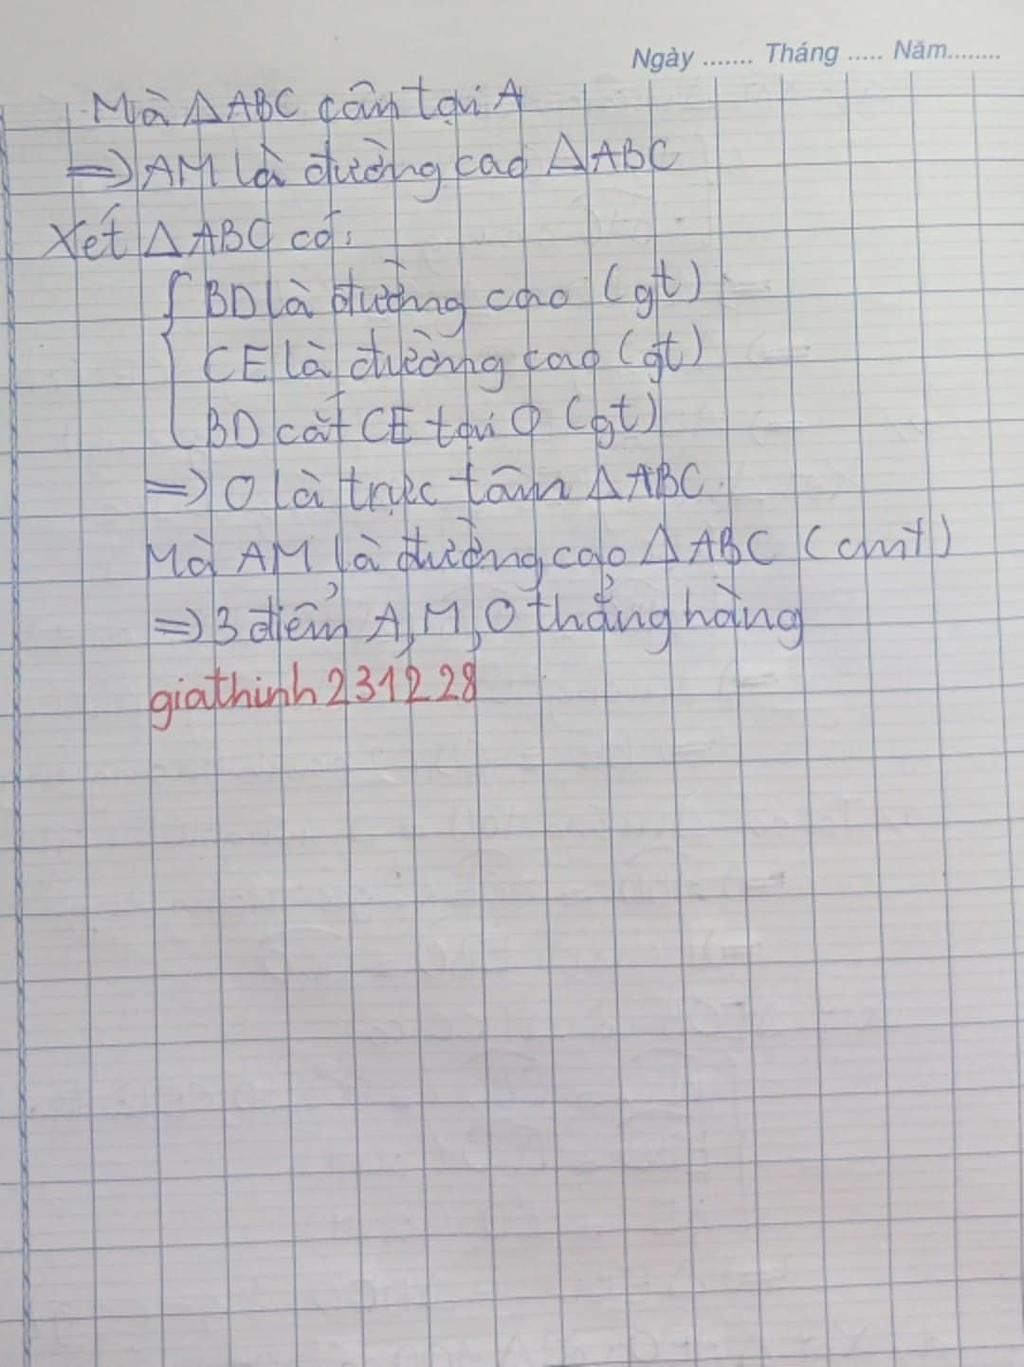 Ngày ....... Tháng ..... Năm........
Mà △ABC cân tại A
=> AM là đường cao △ABC
Xét △ABC có:
{ BD là đường cao (gt)
CE là đường cao (gt)
BD cắt CE tại O (gt)
=> O là trực tâm △ABC
Mà AM là đường cao △ABC (cmt)
=> 3 điểm A, M, O thẳng hàng
giathinh231228